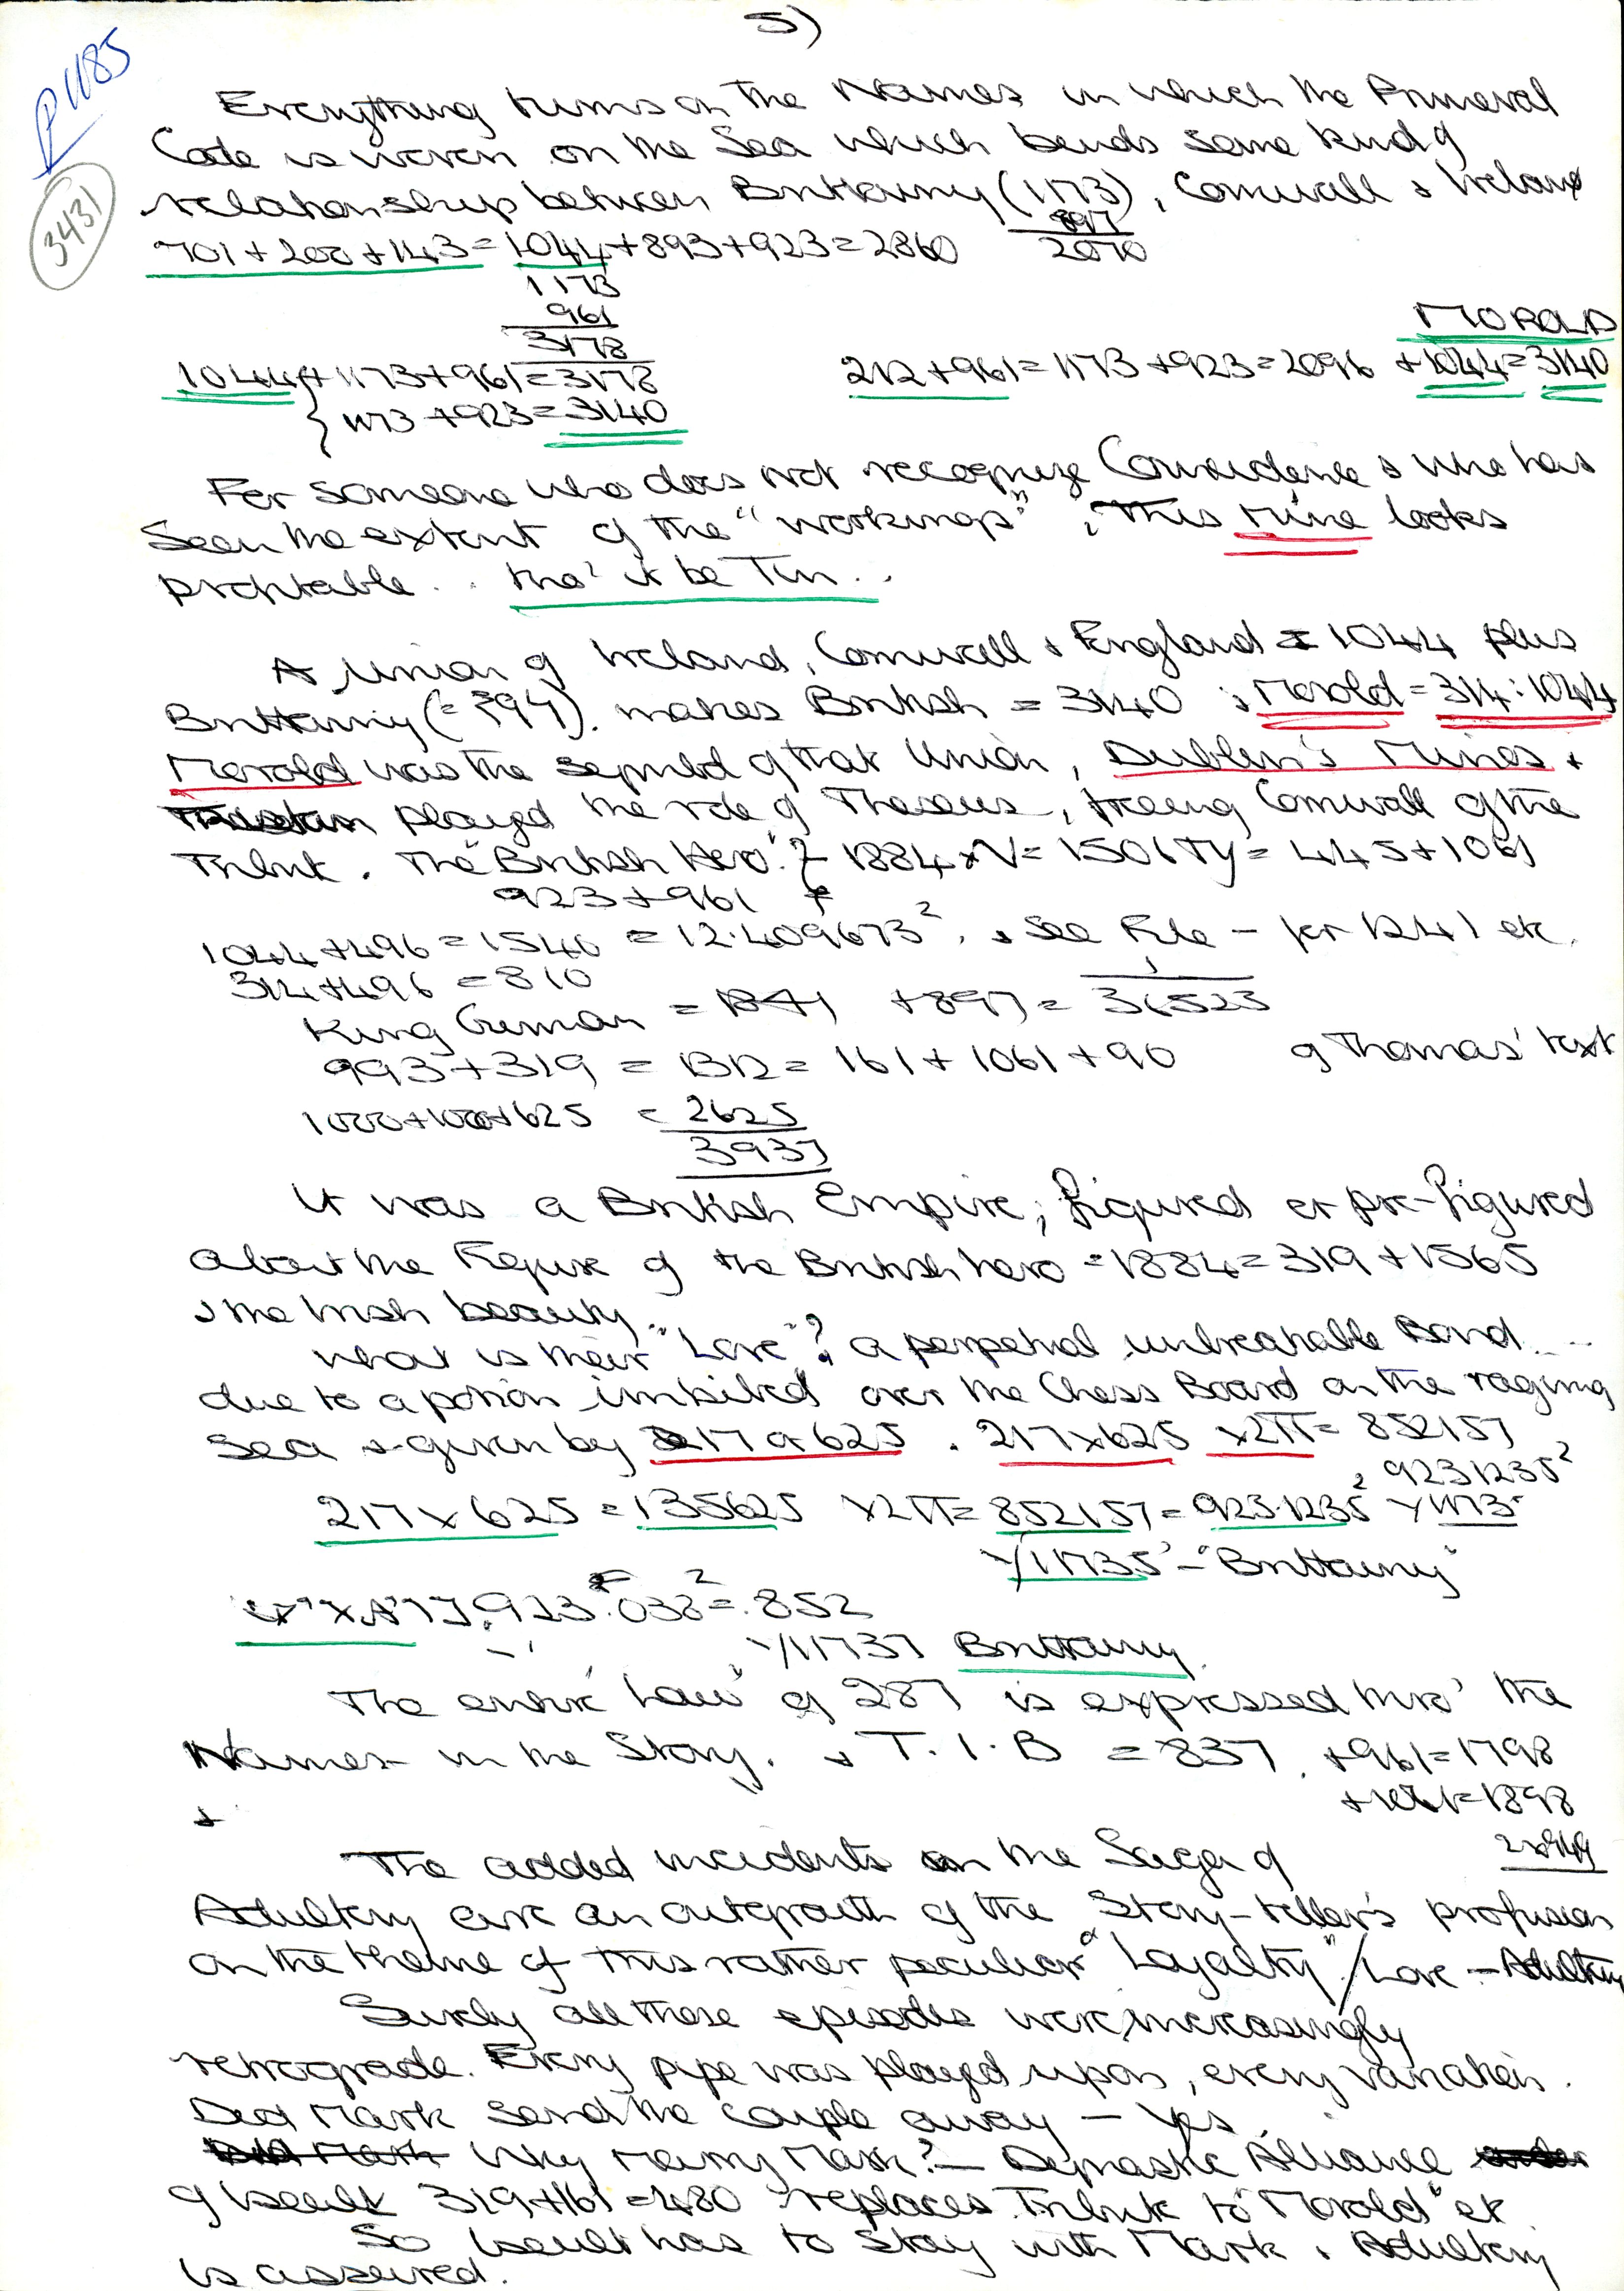 5)
P1185
3431
Everything turns on the Names in which the Primeval
Code is woven on the Sea which bends some kind of
relationship between Brittanny (1173), Cornwall & Ireland
897
701+200+143=1044+893+923=2860 2070
1173
961
3178
MOROLD
1044+1173+961=3178 212+961=1173+923=2096 +1044=3140
1173+923=3140
For someone who does not recognize Coincidence & who has
Seen the extent of the "workings", This Mine looks
profitable.. tho' it be Tin..
A Union of Ireland, Cornwall & England = 1044 plus
Brittanny (=897). makes British = 3140 ; Morold = 314:1044
Morold was the symbol of that Union, Dublin's Minos &
Tristan played the role of Theseus, freeing Cornwall of the
Tribute. The "British Hero"? 1884 x V= 1506 Ty= 445+1061
923+961
1044+496=1540 =12.409673², & See File - for 1241 etc.
314+496 =810
King Gurman = 1841 +897= 36525
993+319 = 1312= 161+1061+90 of Thomas' text
1000+1000+625 = 2625
3937
It was a British Empire; figured or pre-figured
about the Figure of the British hero =1884=319+1565
& the Irish beauty.
what is their "Love"? a perpetual unbreakable Bond...
due to a potion imbibed over the Chess Board on the raging
Sea & given by 217 or 625. 217x625 x2π= 852157
923.1235²
217x625=135625 x2π= 852157=923.1235² y1173.5
y/1173.5 - "Brittanny"
923.038²=.852
y/11737 Brittanny.
The entire "Law" of 287 is expressed thro' the
Names in the Story. & T.I.B = 837. +961=1798
+1061=1898
&
2x949
The added incidents on the Saga of
Adultery are an outgrowth of the Story-teller's profusion
on the theme of this rather peculiar "Loyalty"/Love - Adultery
Surely all these episodes were increasingly
retrograde. Every pipe was played upon, every variation.
Did Mark send the couple away - Yes.
Why marry Mark? - Dynastic Alliance
of Iseult 319+161=480 replaces Tribute to "Morold" etc
So Iseult has to stay with Mark. Adultery
is assured.